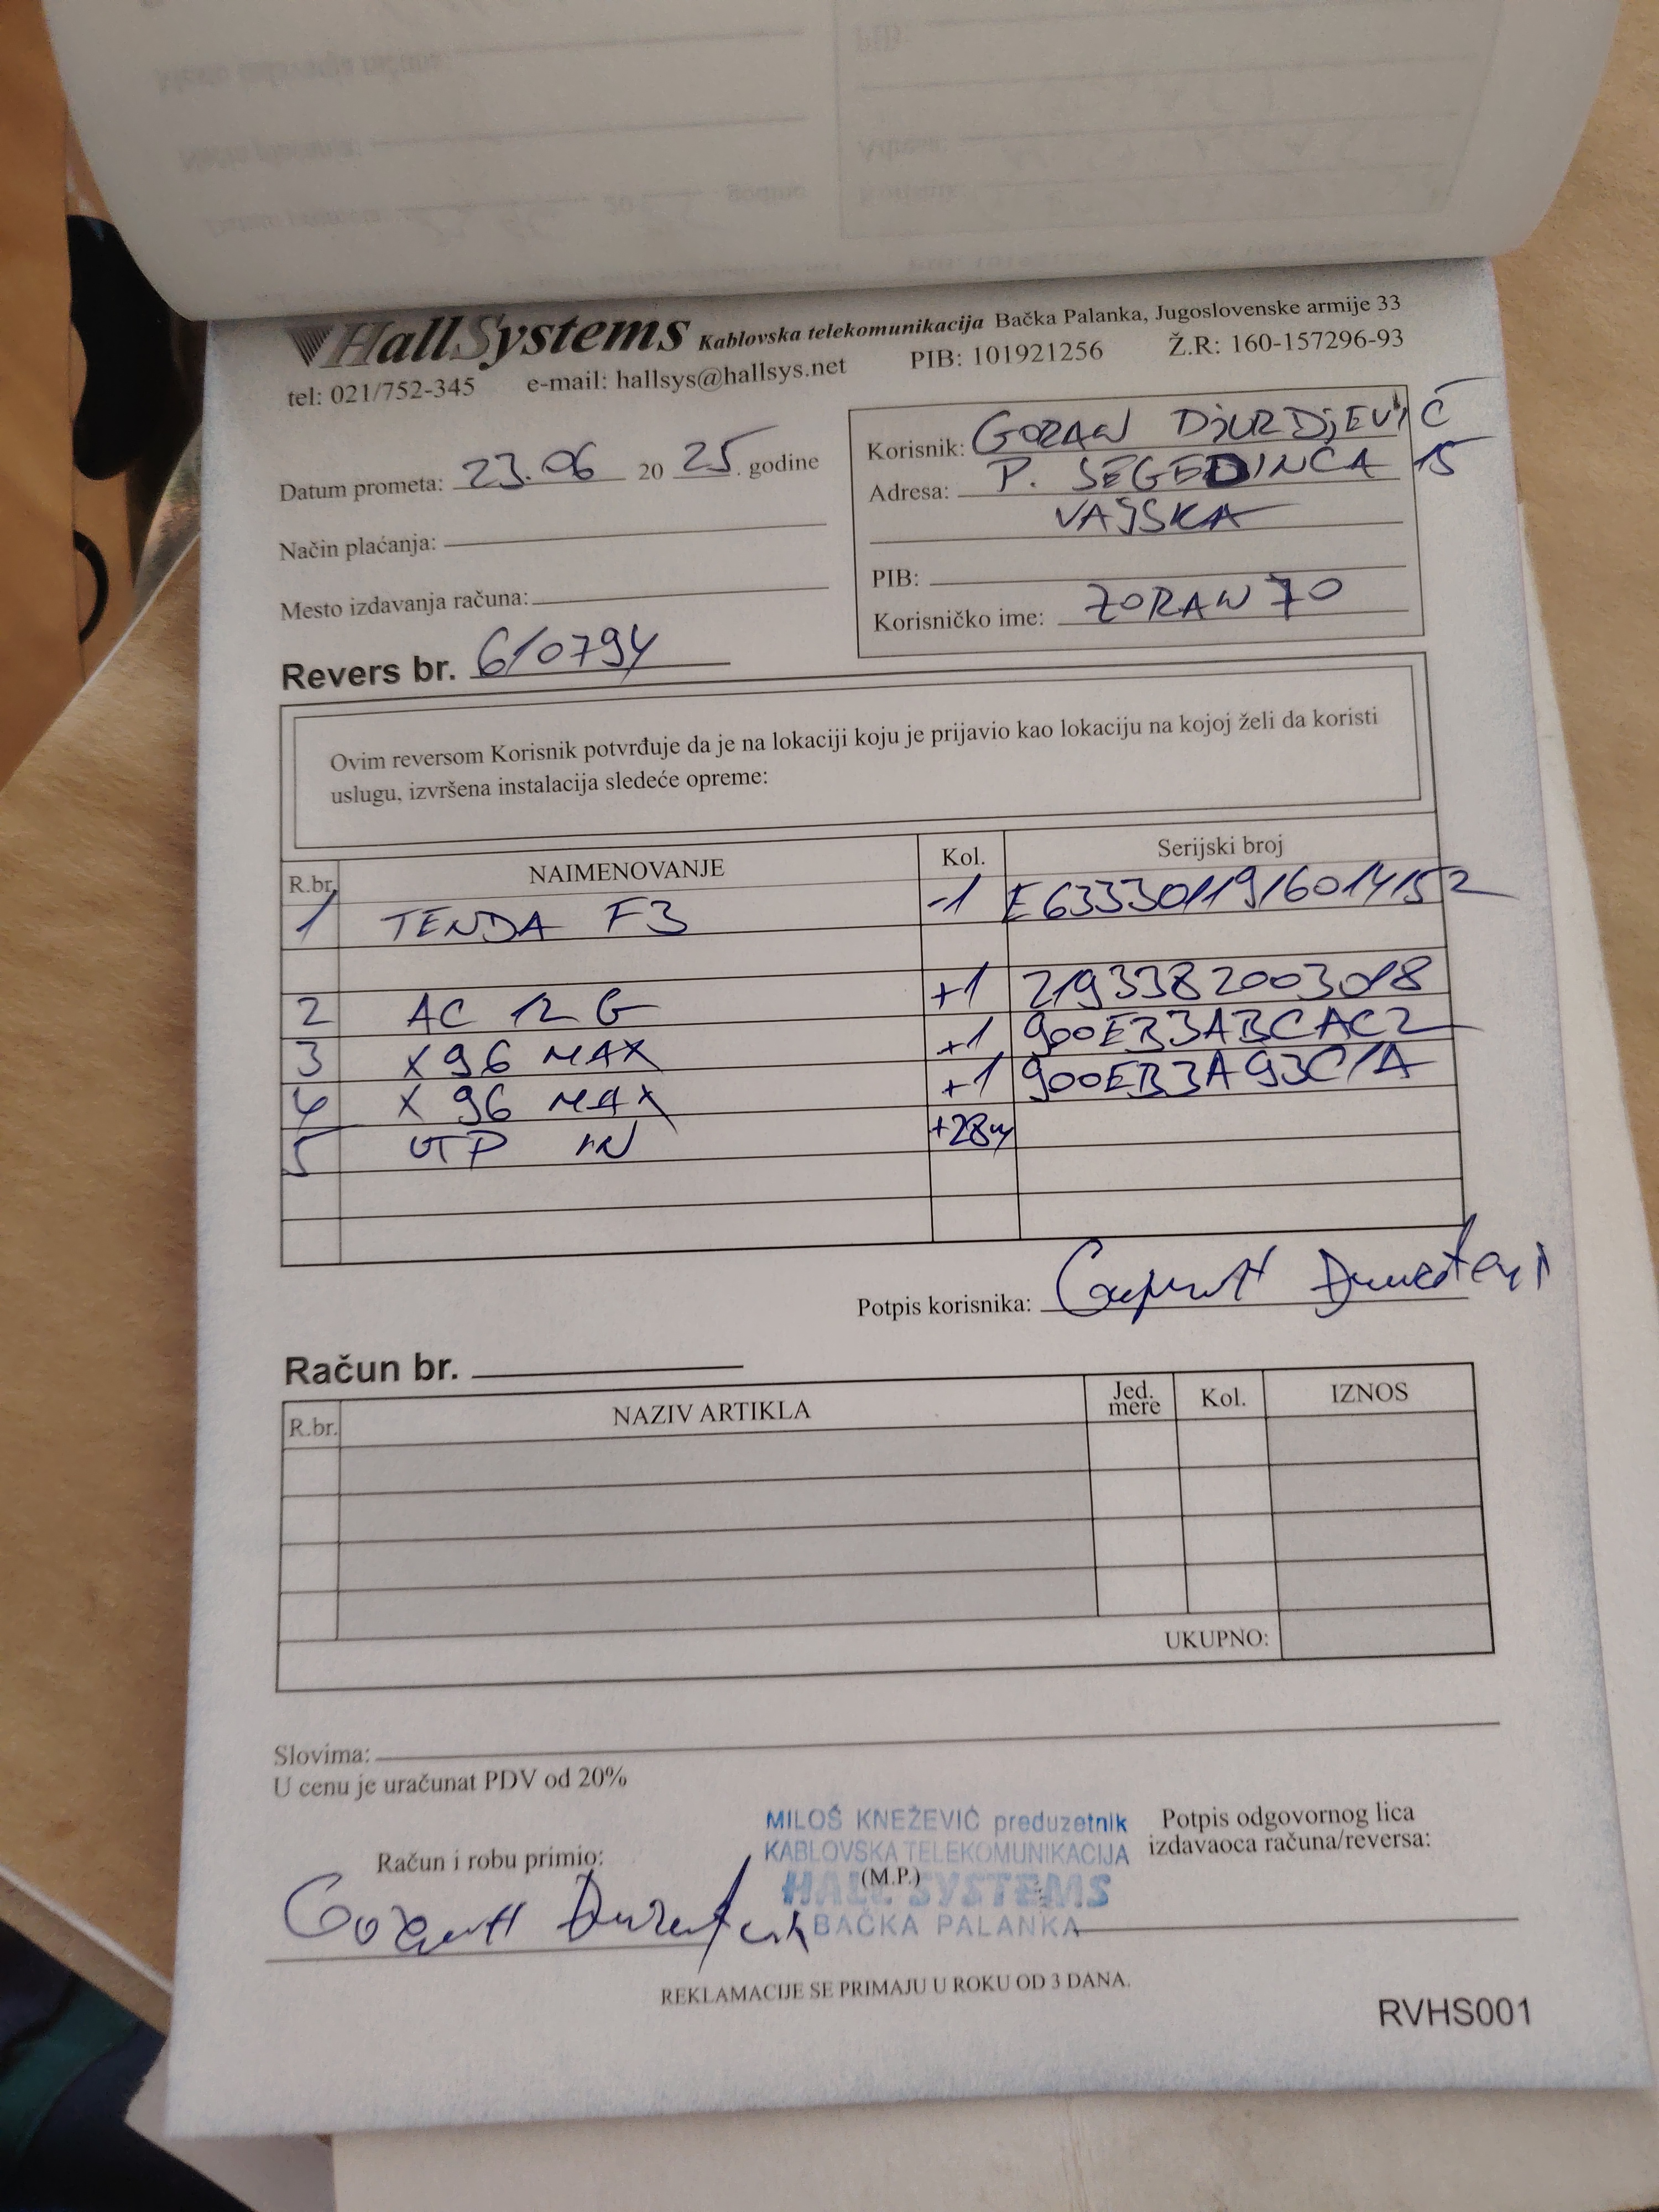 HallSystems Kablovska telekomunikacija Bačka Palanka, Jugoslovenske armije 33
tel: 021/752-345 e-mail: hallsys@hallsys.net PIB: 101921256 Ž.R: 160-157296-93
Datum prometa: 23.06 20 25. godine
Način plaćanja:
Mesto izdavanja računa:
Revers br. 610794
Korisnik: GORAN DjURDjEVIĆ
Adresa: P. SEGEDINCA 15
VAJSKA
PIB:
Korisničko ime: ZORAN70
Ovim reversom Korisnik potvrđuje da je na lokaciji koju je prijavio kao lokaciju na kojoj želi da koristi
uslugu, izvršena instalacija sledeće opreme:
R.br. NAIMENOVANJE Kol. Serijski broj
1 TENDA F3 -1 E6333011916014152
2 AC 12 G +1 2193382003018
3 X96 MAX +1 900EB3ABCAC2
4 X 96 MAX +1 900EB3A93C1A
5 UTP IN +28m
Potpis korisnika:
Račun br.
R.br. NAZIV ARTIKLA Jed. mere Kol. IZNOS
UKUPNO:
Slovima:
U cenu je uračunat PDV od 20%
Račun i robu primio:
MILOŠ KNEŽEVIĆ preduzetnik
KABLOVSKA TELEKOMUNIKACIJA
(M.P.)
HALL SYSTEMS
BAČKA PALANKA
Potpis odgovornog lica
izdavaoca računa/reversa:
REKLAMACIJE SE PRIMAJU U ROKU OD 3 DANA.
RVHS001